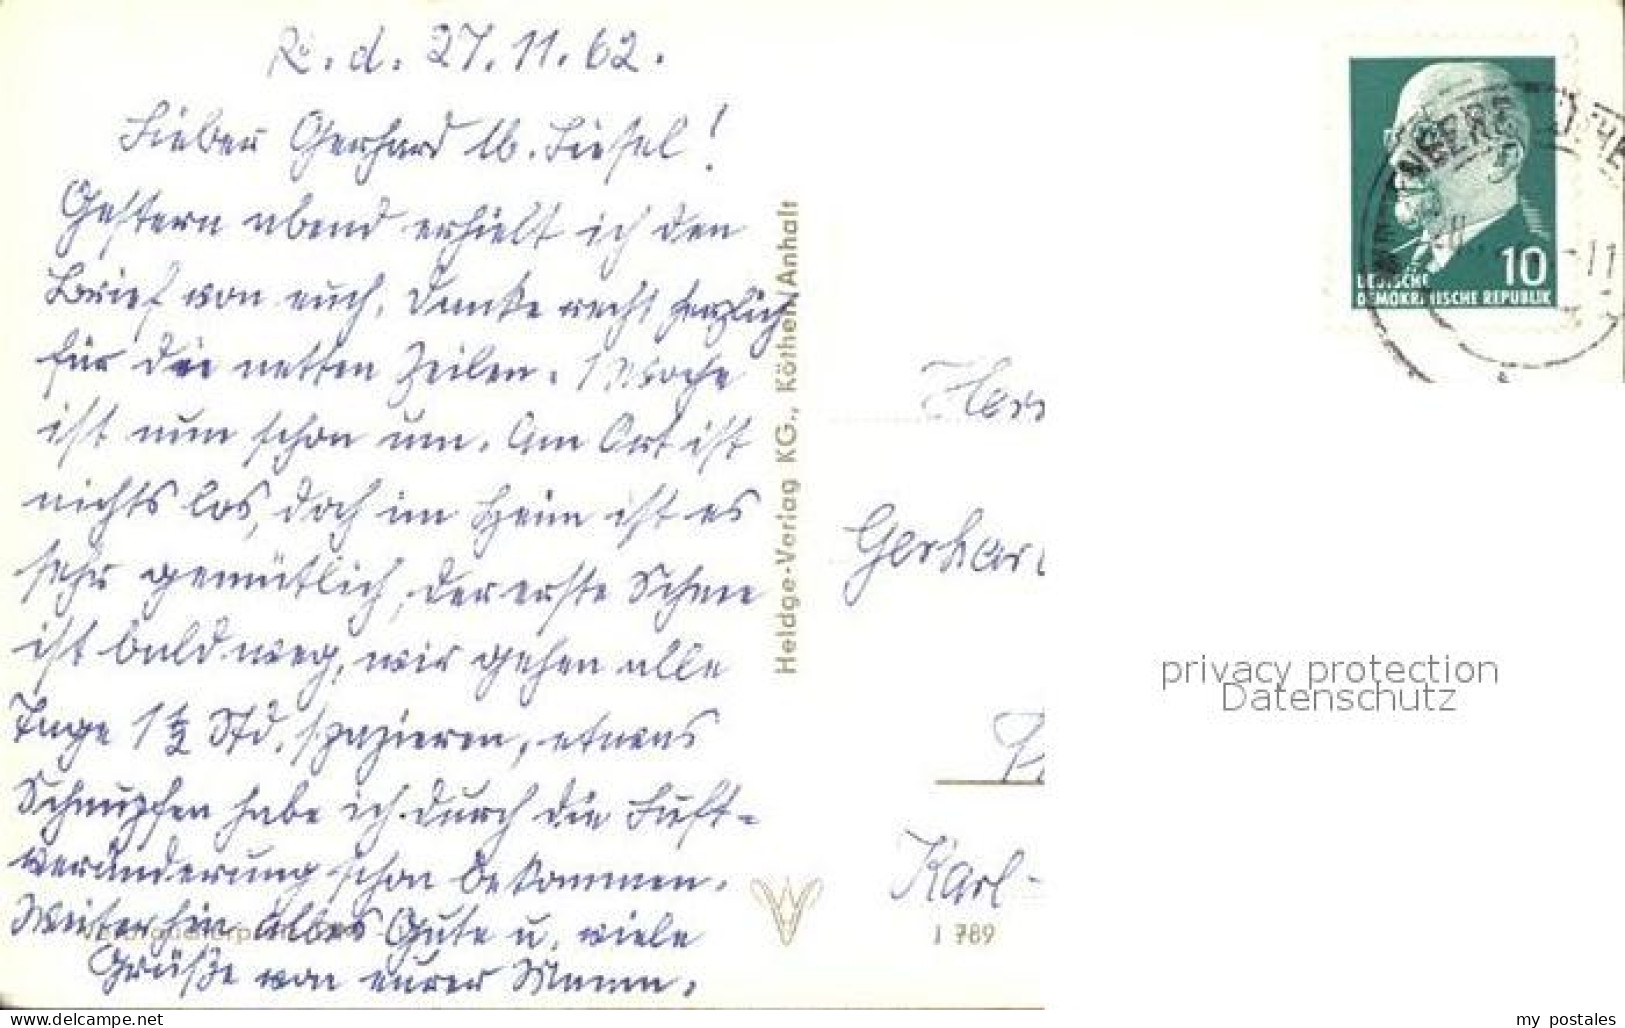 R. d. 27.11.62.
Lieber Gerhard lb. Liesel!
Gestern abend erhielt ich den
Brief von euch. Danke recht herzlich
für die netten Zeilen. 1 Woche
ist nun schon um. Am Ort ist
nichts los, doch im Heim ist es
sehr gemütlich, der erste Schnee
ist bald weg, wir gehen alle
Tage 1½ Std. spazieren, etwas
Schnupfen habe ich durch die Luft-
veränderung schon bekommen.
Weiterhin alles Gute u. viele
Grüße von eurer Mama.
Heldge-Verlag KG., Köthen/Anhalt
J 789
10
DEUTSCHE
DEMOKRATISCHE REPUBLIK
Herr
Gerhar
Karl-
privacy protection
Datenschutz
www.delcampe.net
my_postales